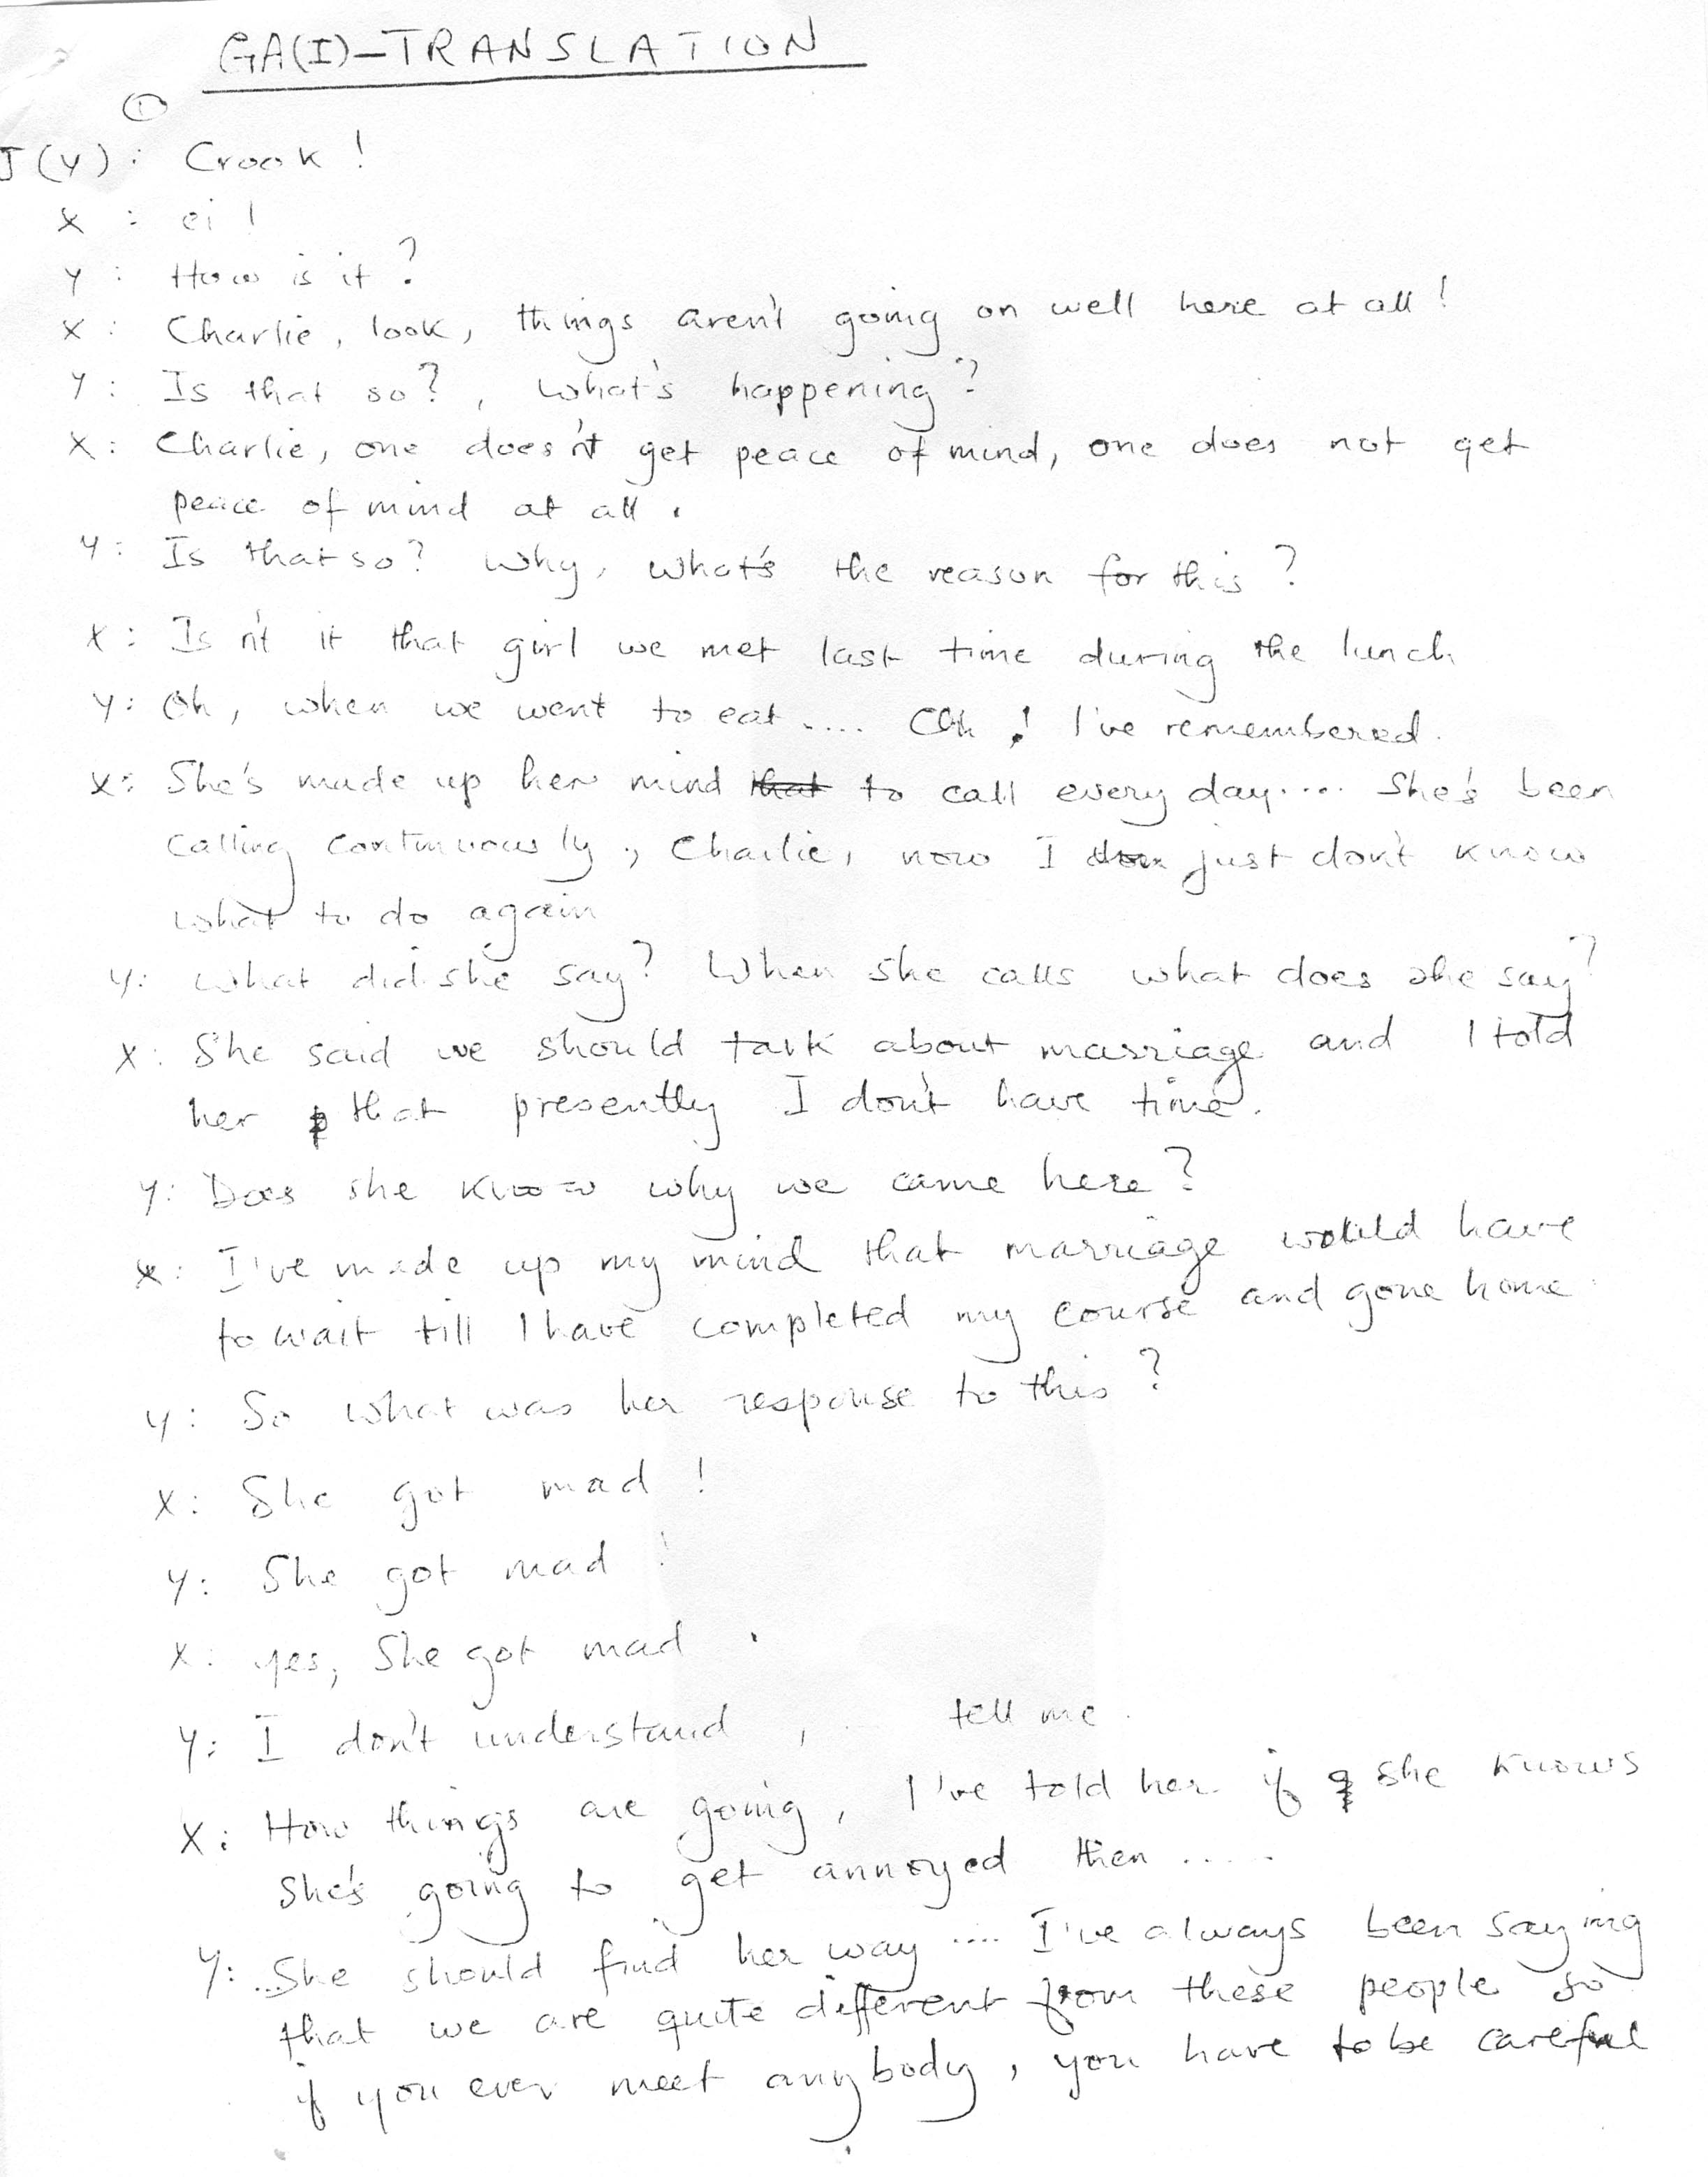 GA(I)-TRANSLATION
①
J(Y): Crook!
X: ei!
Y: How is it?
X: Charlie, look, things aren't going on well here at all!
Y: Is that so?, What's happening?
X: Charlie, one doesn't get peace of mind, one does not get
peace of mind at all.
Y: Is that so? Why, what's the reason for this?
X: Isn't it that girl we met last time during the lunch
Y: Oh, when we went to eat.... Oh! I've remembered.
X: She's made up her mind that to call every day.... She's been
calling continuously, Charlie, now I just don't know
what to do again
Y: What did she say? When she calls what does she say?
X: She said we should talk about marriage and I told
her that presently I don't have time.
Y: Does she know why we came here?
X: I've made up my mind that marriage would have
to wait till I have completed my course and gone home
Y: So what was her response to this?
X: She got mad!
Y: She got mad!
X: yes, She got mad.
Y: I don't understand, tell me.
X: How things are going, I've told her if she knows
She's going to get annoyed then .....
Y: ..She should find her way .... I've always been saying
that we are quite different from these people so
if you ever meet anybody, you have to be careful